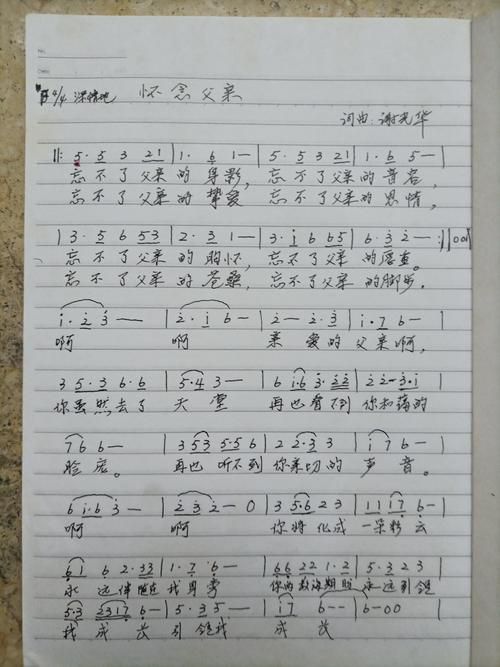 No.
Date
4/4 深情地 怀念父亲
词曲:谢光华
‖: 5·5 3 21 | 1· 6 1— | 5·5 3 21 | 1·6 5— |
忘不了父亲的身影,忘不了父亲的音容,
忘不了父亲的挚爱 忘不了父亲的恩情,
| 3·5 6 53 | 2·3 1— | 3·i 6 65 | 6·3 2— :‖
忘不了父亲的胸怀,忘不了父亲的
忘不了父亲的苍桑,忘不了父亲的脚步。
i·2 3—— | 2·i 6— | 2—2·3 | i·7 6— |
啊 啊 亲爱的父亲啊,
3 5·3 6·6 | 5·4 3— | 6 i·6 3·22 | 22—3·i |
你虽然去了 天堂 再也看不到你和蔼的
76 6— | 3 53 5·5 6 | 2 2·3 3 | i 7 6— |
脸庞。 再也听不到你亲切的 声音。
6 i·6 3— | 2 3 2—0 | 3 5·6 2 3 | 11 17 6— |
啊 啊 你将化成 一朵彩云
61 6 2·33 | 1·7 6— | 66 22 1·2 | 5·3 2 3 |
永远伴随在我身旁 你的教诲期盼 永远引领
5·3 2317 6— | 5·3 5— | i7 6—— | 6—00 |
我成长 引领我 成长